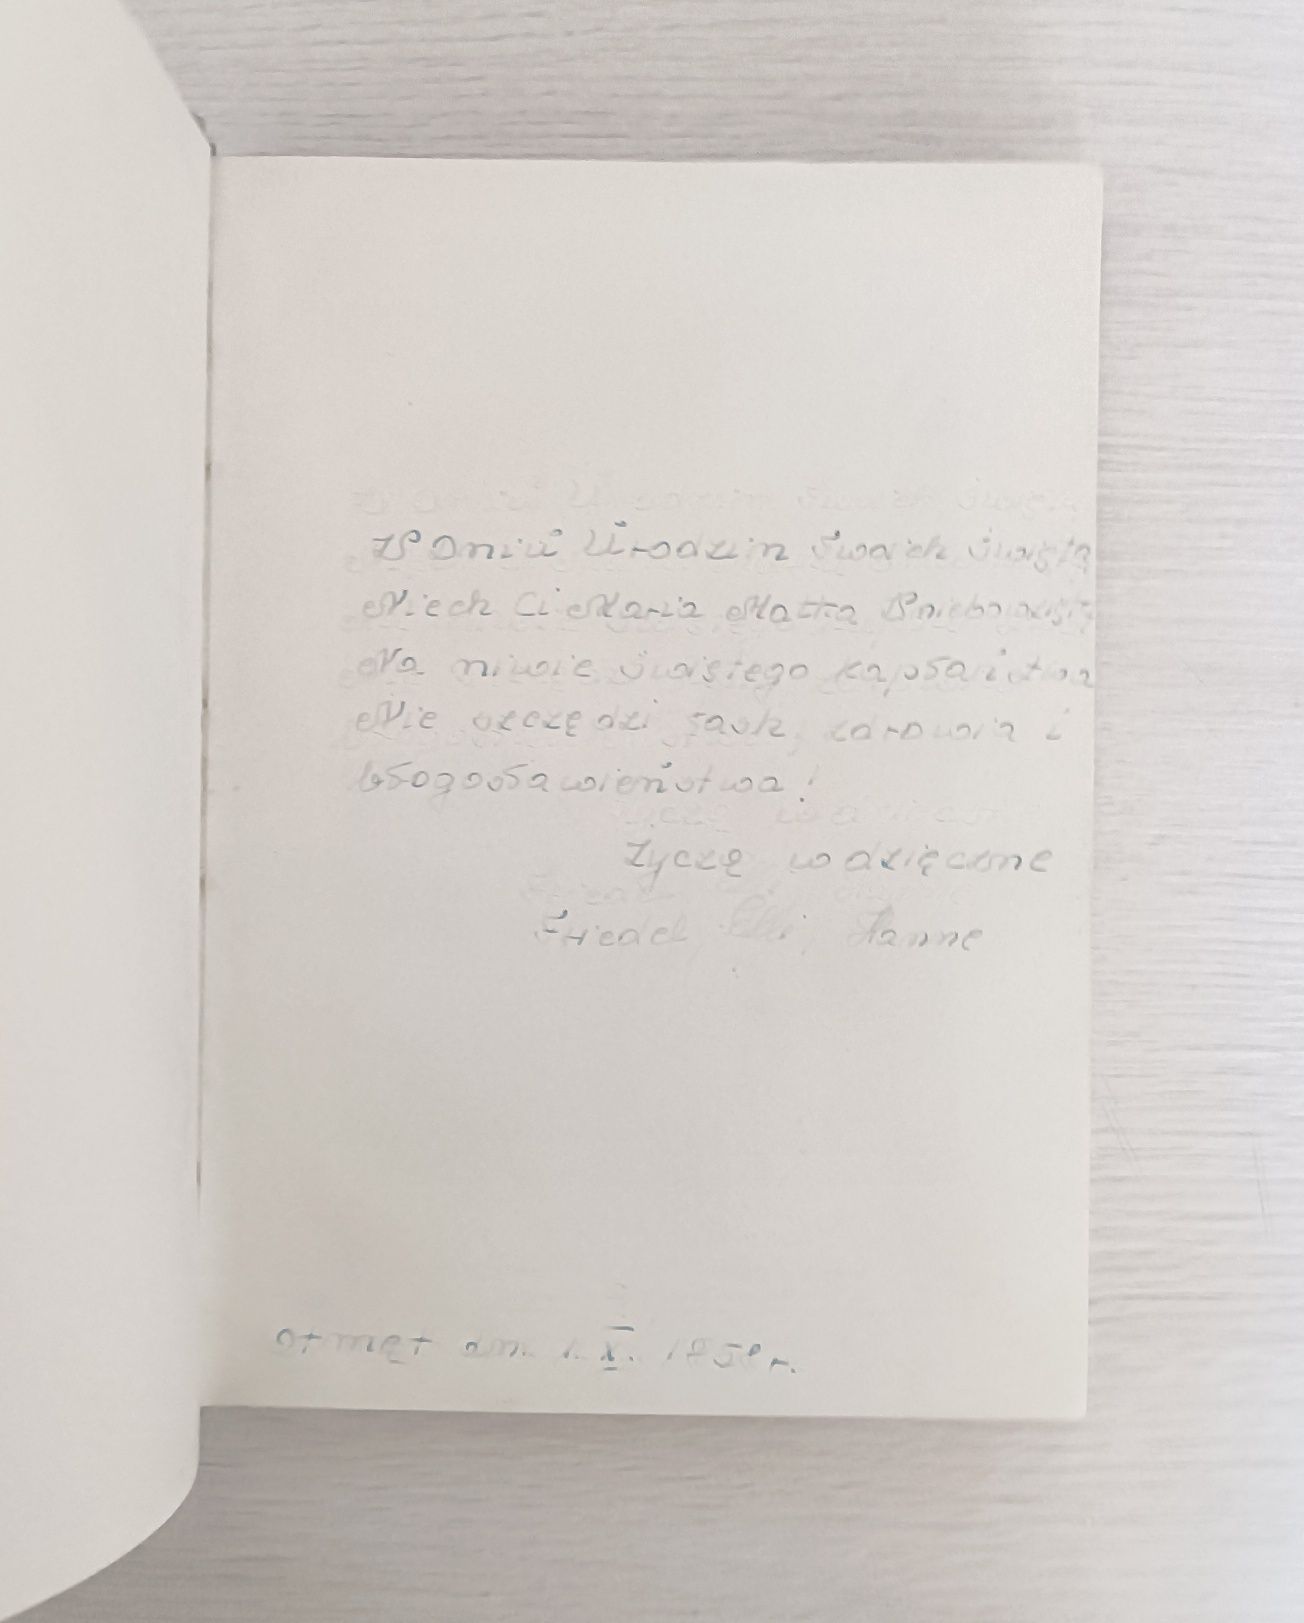 W Dniu Urodzin Swoich Święta
Niech Ci Maria Matka Wniebowzięta
Na niwie świętego kapłaństwa
Nie szczędzi łask, zdrowia i
błogosławieństwa!
Życzą wdzięczne
Friedel, Elli, Hanne
Otmęt dn. 1. X. 1958 r.